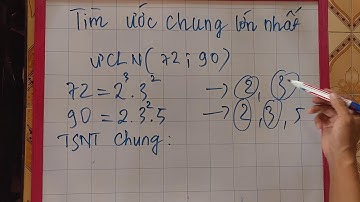 Tìm ước chung lớn nhất
ƯCLN(72; 90)
72 = 2³.3² → 2, 3
90 = 2.3².5 → 2, 3, 5
TSNT chung: